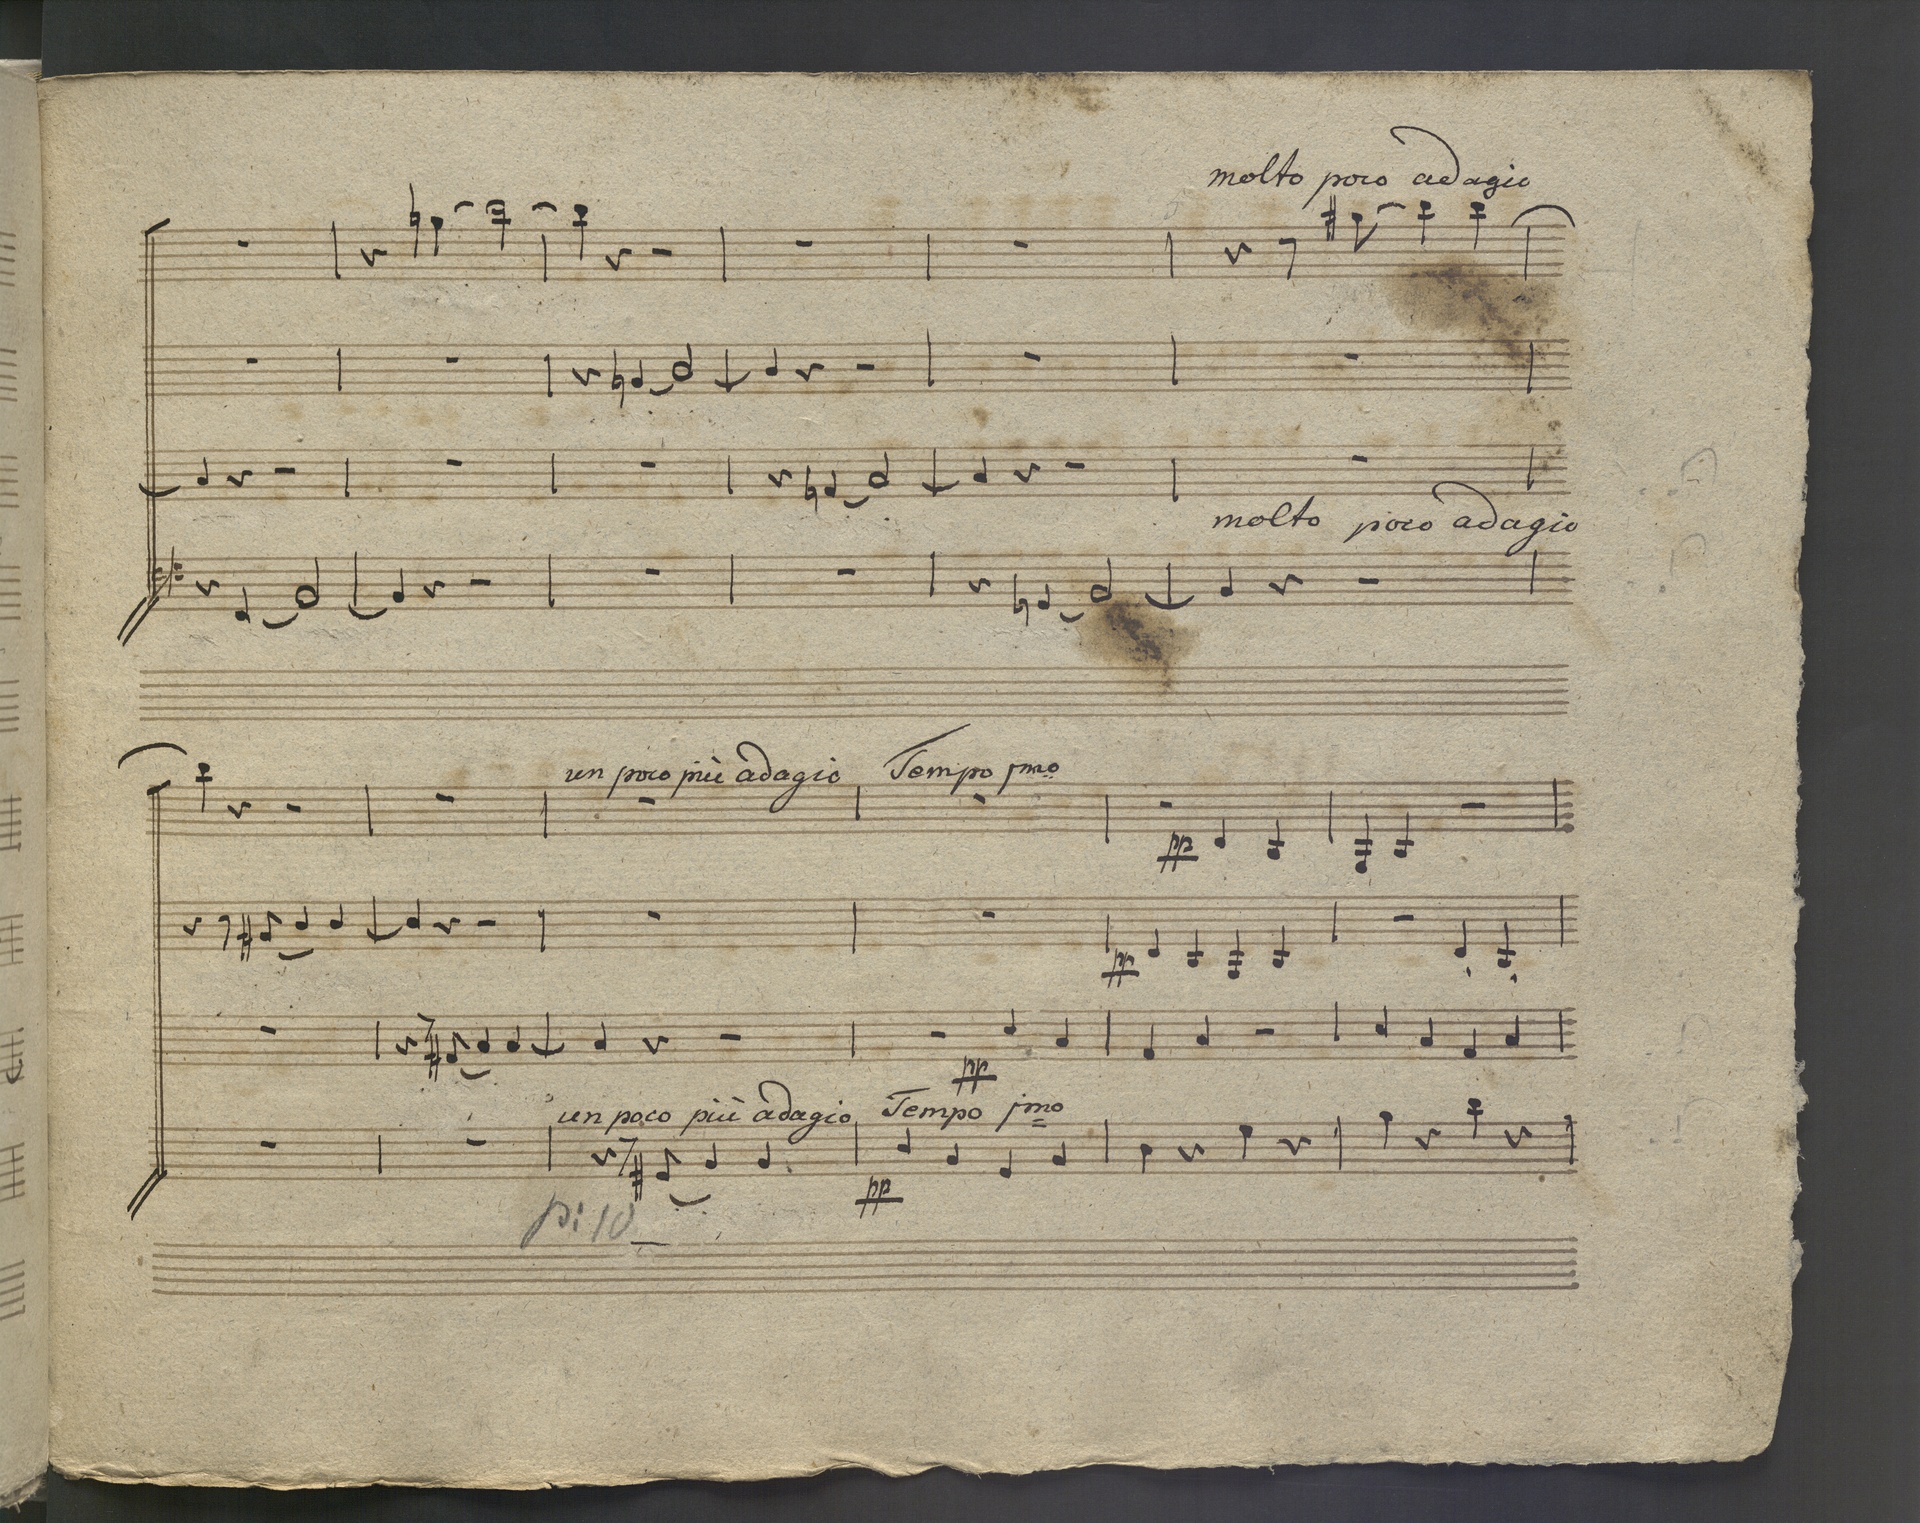 molto poco adagio
molto poco adagio
un poco più adagio Tempo jmo
pp
pp
pp
un poco più adagio Tempo jmo
pp